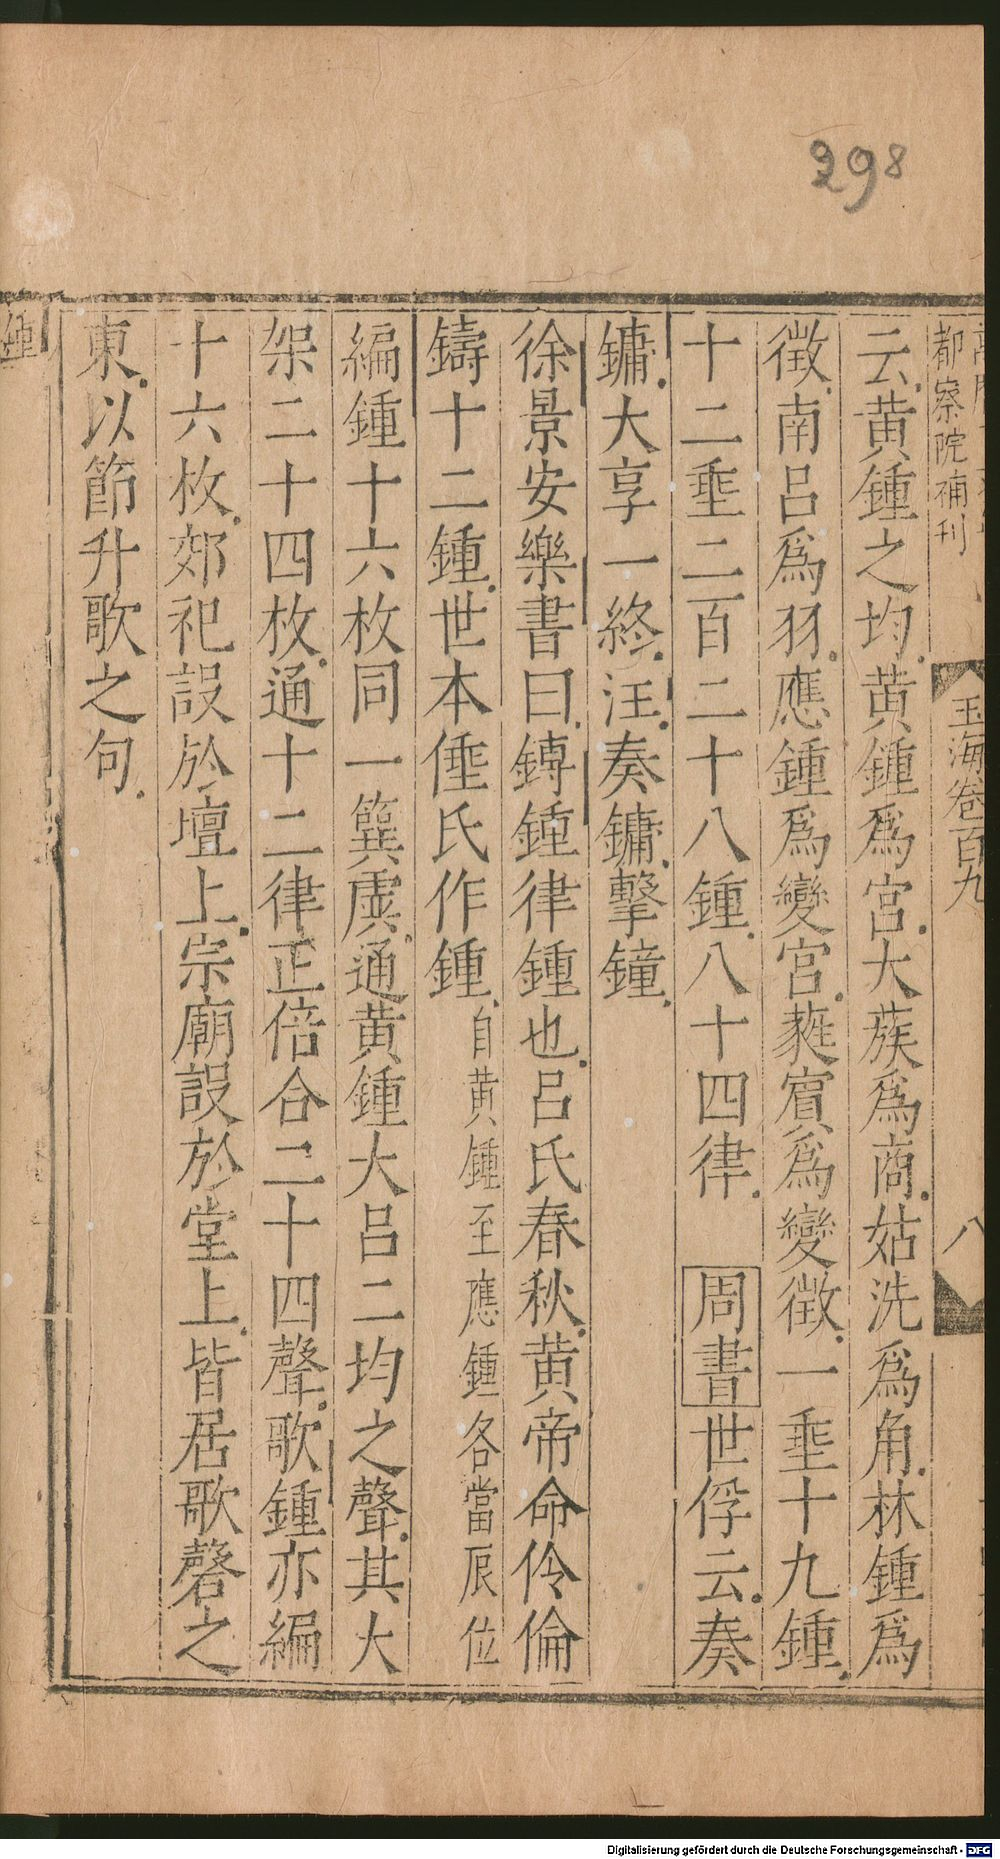 298
都察院補刊
玉海卷百九
八
云黄鍾之均黄鍾爲宮大蔟爲商姑洗爲角林鍾爲
徵南呂爲羽應鍾爲變宮蕤賓爲變徵一埀十九鍾
十二埀二百二十八鍾八十四律 周書世俘云奏
鏞大享一終注奏鏞擊鐘
徐景安樂書曰鎛鍾律鍾也呂氏春秋黄帝命伶倫
鑄十二鍾世本倕氏作鍾自黄鍾至應鍾各當辰位
編鍾十六枚同一簨虡通黄鍾大呂二均之聲其大
架二十四枚通十二律正倍合二十四聲歌鍾亦編
十六枚郊祀設於壇上宗廟設於堂上皆居歌磬之
東以節升歌之句
鍾
Digitalisierung gefördert durch die Deutsche Forschungsgemeinschaft - DFG